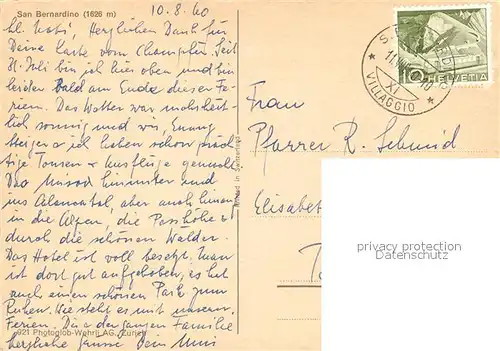 San Bernardino (1626 m)
10.8.60
Herzlichen Dank für
Deine Karte vom Champfèr. Seit
31. Juli bin ich hier oben und bin
leider bald am Ende dieser Fe-
rien. Das Wetter war
sonnig und wir,
und ich haben schon präch-
tige Touren & Ausflüge gemacht.
Das hinunter und
ins aber auch hinauf
in die Alpen, die Passhöhe &
durch die schönen Wälder.
Das Hotel ist voll besetzt. Man
ist dort gut aufgehoben, es hat
auch einen schönen Park zum
Ruhen. Wie steht es mit unseren
Ferien. Dir & der ganzen Familie
herzliche Grüsse Dein
921 Photoglob-Wehrli AG, Zürich
HELVETIA
10
XI
VILLAGGIO
Frau
Pfarrer R. Schmid
Elisabet
privacy protection
Datenschutz